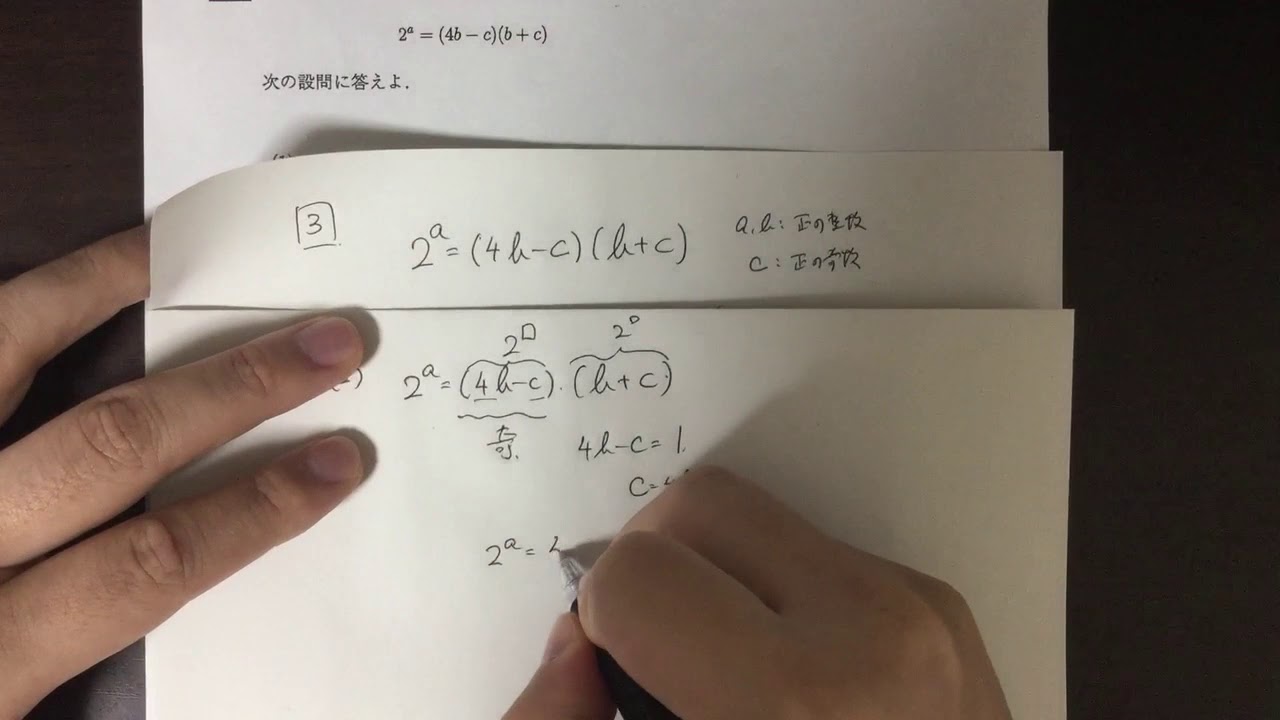 2^a = (4b − c)(b + c)
次の設問に答えよ.
3
2^a = (4b−c)(b+c)
a, b : 正の整数
c : 正の奇数
2^□ 2^□
2^a = (4b−c)·(b+c)
奇数.
4b−c = 1.
c=4
2^a =